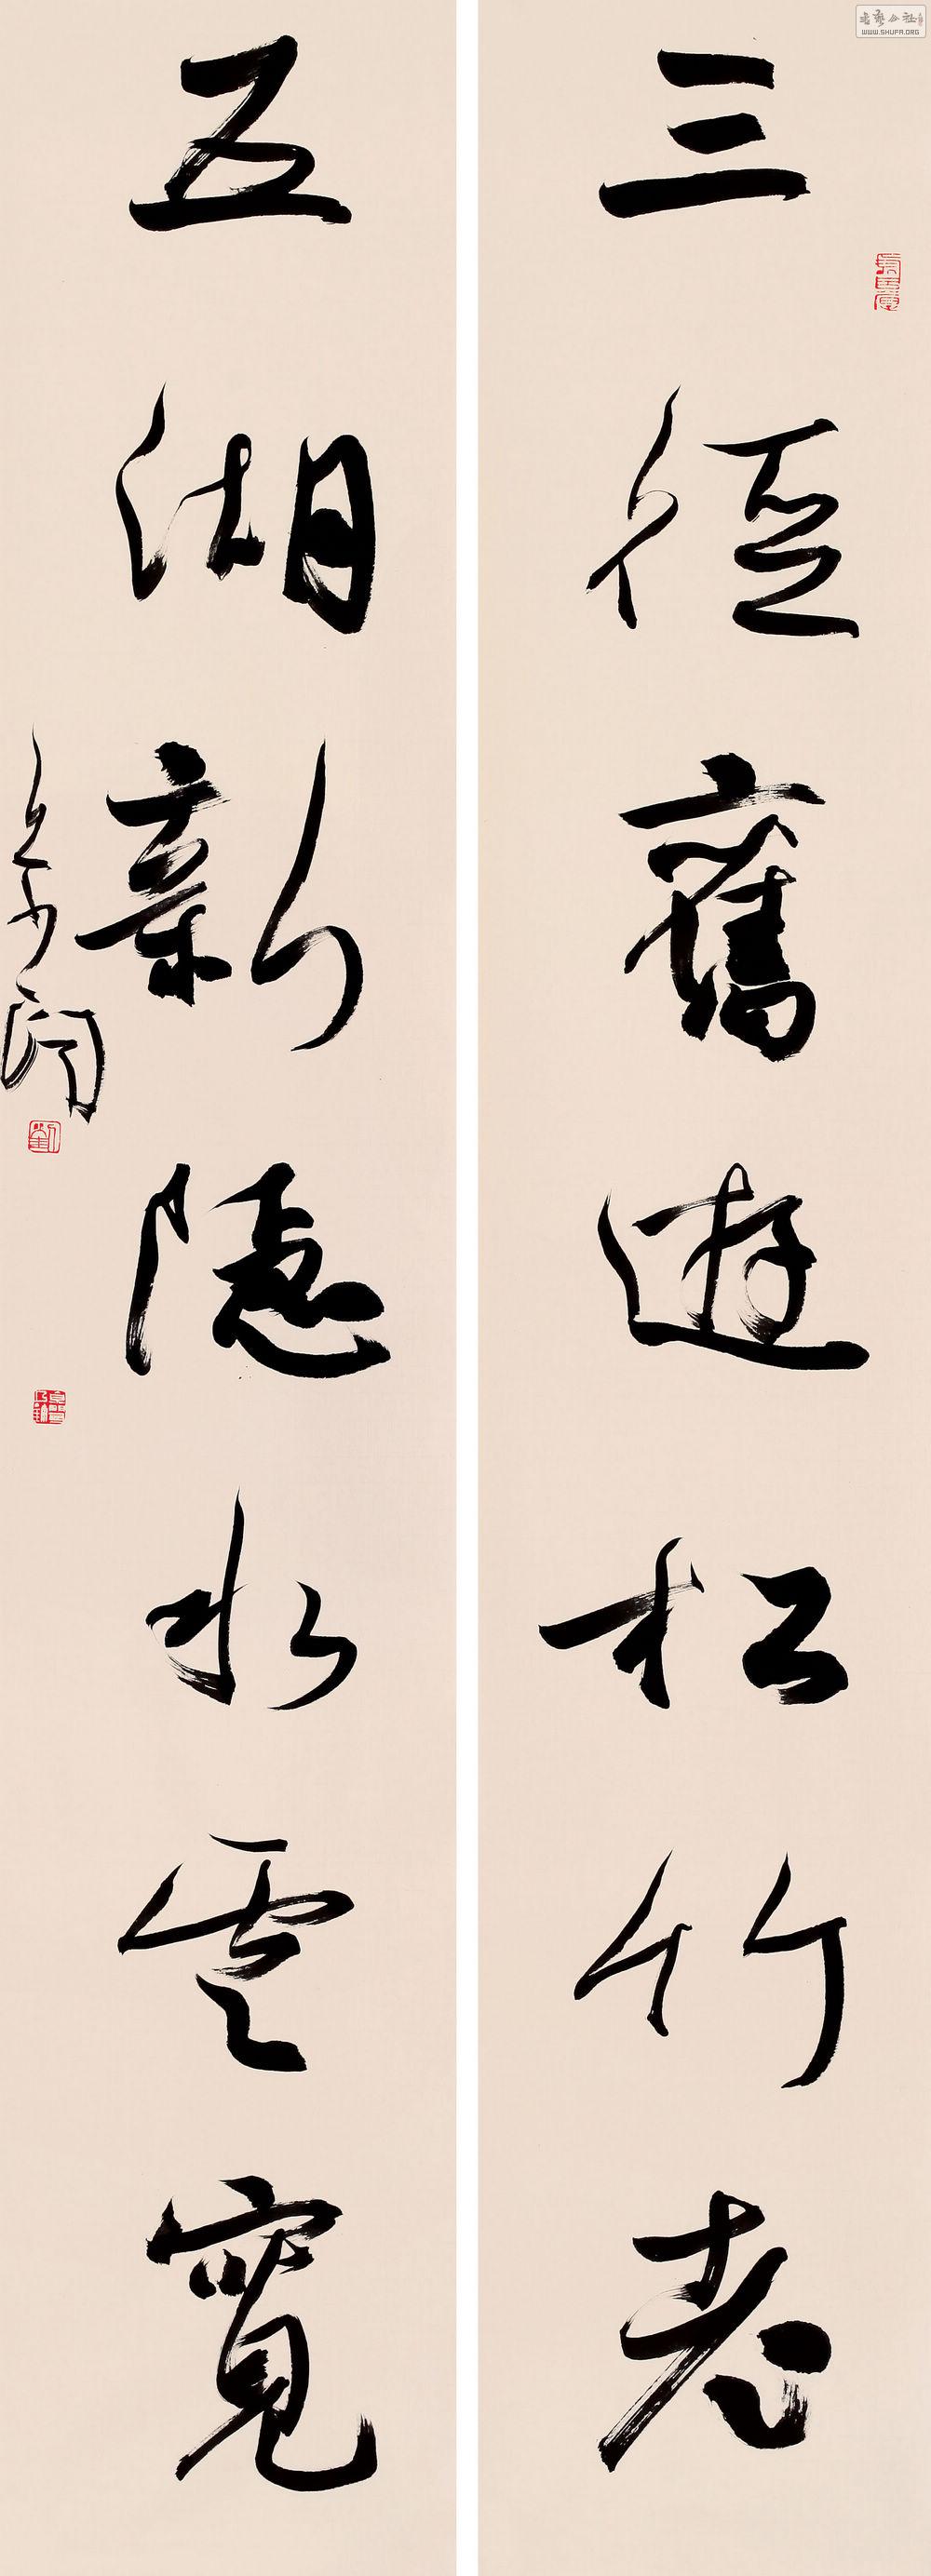 三徑舊遊松竹老
五湖新隱水雲寬
WWW.SHUFA.ORG